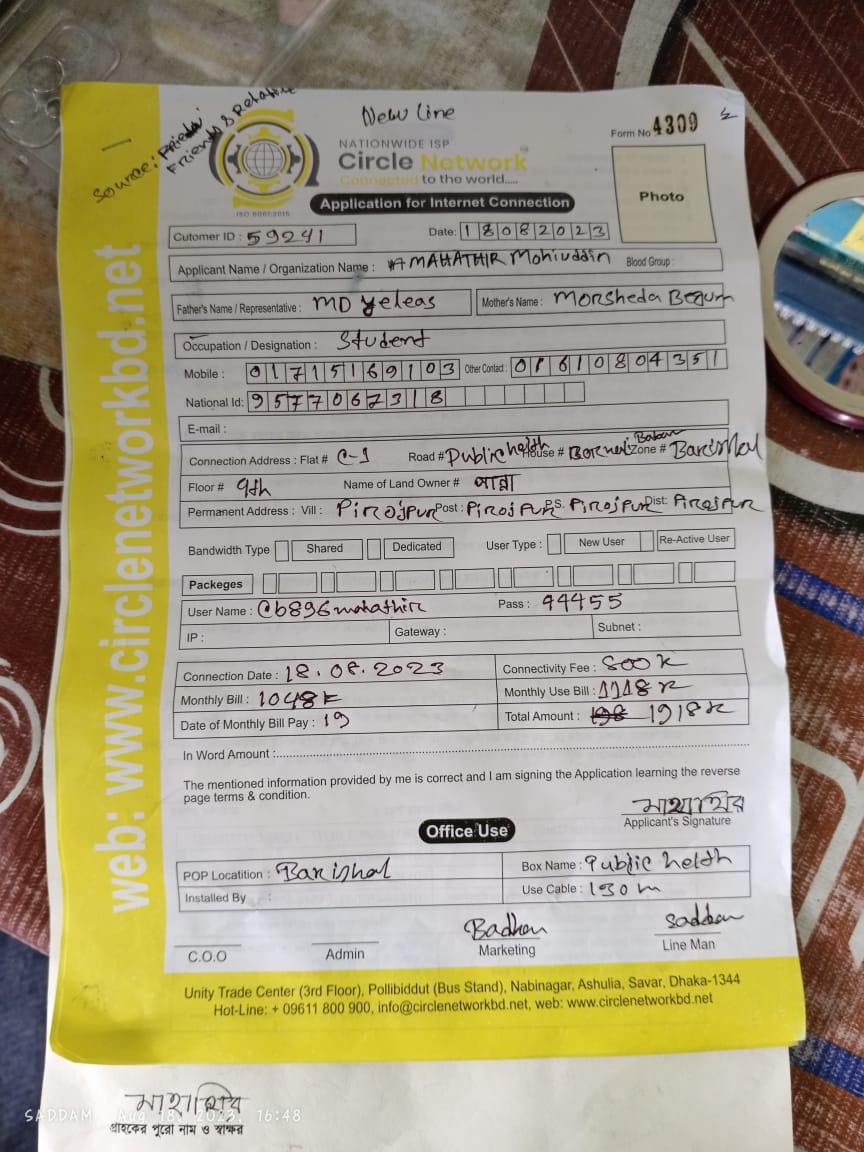 New Line
Source: Friends & Relative
NATIONWIDE ISP
Circle Network
Connected to the world.....
ISO 9001:2015
Form No 4309
Photo
Application for Internet Connection
Cutomer ID : 59241
Date: 18082023
Applicant Name / Organization Name : MAHATHIR Mohiuddin Blood Group :
Father's Name / Representative : MD Yeleas Mother's Name : Morsheda Begum
Occupation / Designation : Student
Mobile : 01715169103 Other Contact : 01610804351
National Id: 9577067318
E-mail :
Connection Address : Flat # C-1 Road # Public helth House # Zone # Barishal
Floor # 9th Name of Land Owner # পান্না
Permanent Address : Vill : Pirojpur Post : Pirojpur P.S. Pirojpur Dist: Pirojpur
Bandwidth Type Shared Dedicated User Type : New User Re-Active User
Packeges
User Name : Cb896mahathir Pass : 44455
IP : Gateway : Subnet :
Connection Date : 18.08.2023 Connectivity Fee : 800
Monthly Bill : 1048 Monthly Use Bill : 1118
Date of Monthly Bill Pay : 19 Total Amount : 1918
In Word Amount :
The mentioned information provided by me is correct and I am signing the Application learning the reverse
page terms & condition.
মাহাথির
Applicant's Signature
Office Use
POP Locatition : Barishal Box Name : Public helth
Installed By : Use Cable : 130 m
Badhon saddam
C.O.O Admin Marketing Line Man
Unity Trade Center (3rd Floor), Pollibiddut (Bus Stand), Nabinagar, Ashulia, Savar, Dhaka-1344
Hot-Line: + 09611 800 900, info@circlenetworkbd.net, web: www.circlenetworkbd.net
web: www.circlenetworkbd.net
মাহাথির
SADDAM Aug 18, 2023, 16:48
গ্রাহকের পুরো নাম ও স্বাক্ষর